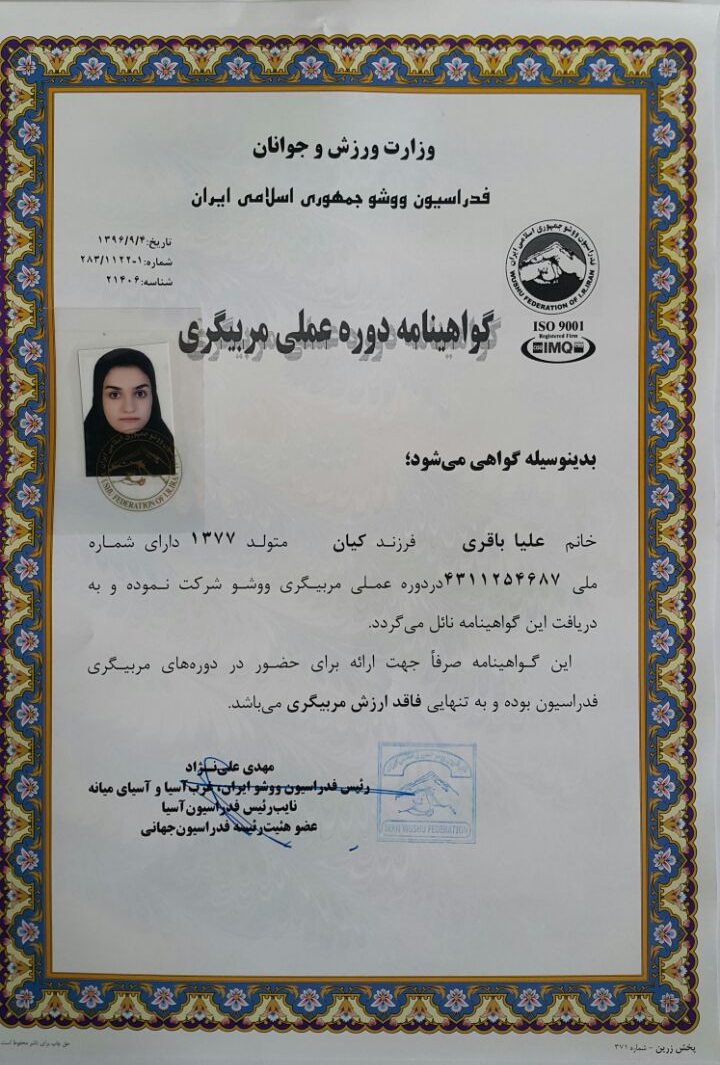 وزارت ورزش و جوانان
فدراسیون ووشو جمهوری اسلامی ایران
تاریخ:۱۳۹۶/۹/۴
شماره:۲۸۳/۱۱۲۲-۱
شناسه:۲۱۴۰۶
فدراسیون ووشو جمهوری اسلامی ایران
WUSHU FEDERATION OF I.R.IRAN
ISO 9001
Registered Firm
IMQ
گواهینامه دوره عملی مربیگری
بدینوسیله گواهی می‌شود؛
خانم علیا باقری فرزند کیان متولد ۱۳۷۷ دارای شماره
ملی ۴۳۱۱۲۵۴۶۸۷دردوره عملی مربیگری ووشو شرکت نموده و به
دریافت این گواهینامه نائل می‌گردد.
این گواهینامه صرفاً جهت ارائه برای حضور در دوره‌های مربیگری
فدراسیون بوده و به تنهایی فاقد ارزش مربیگری می‌باشد.
مهدی علی‌نژاد
رئیس فدراسیون ووشو ایران، غرب آسیا و آسیای میانه
نایب‌رئیس فدراسیون‌آسیا
عضو هئیت‌رئیسه فدراسیون‌جهانی
IRAN WUSHU FEDERATION
پخش زرین - شماره ۳۷۱
حق چاپ برای ناشر محفوظ است